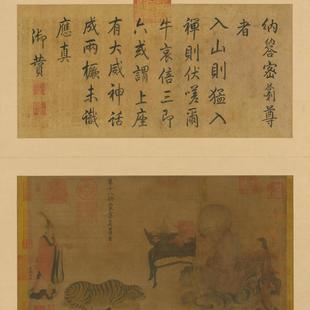 納答密尊
者
入山則猛入
禪則伏嗟爾
牛哀倍三即
六或謂上座
有大威神話
成兩橛未識
應真
御贊
第十八